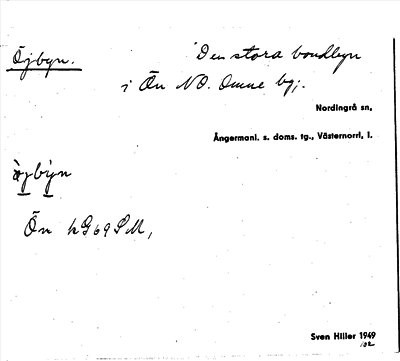 Öjbyn.
Den stora bondbyn
i Ön NO. Omne bg;.
Nordingrå sn,
Ångermanl. s. doms. tg., Västernorrl, l.
öjby̓n
Ön hG69SM,
Sven Hiller 1949
102